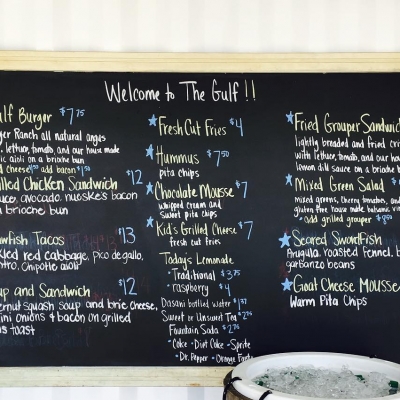 Welcome to The Gulf!!
Burger $7.75
Ranch all natural angus
lettuce, tomato, and our house made
aioli on a brioche bun
add bacon $1.50
Chicken Sandwich $12
avocado, nueske's bacon
brioche bun
Tacos $13
red cabbage, pico de gallo,
chipotle aioli
and Sandwich $12
squash soup and brie cheese,
onions & bacon on grilled
toast
Fresh Cut Fries $4
Hummus $7.50
pita chips
Chocolate Mousse $7
whipped cream and
sweet pita chips
Kid's Grilled Cheese $7
fresh cut fries
Today's Lemonade
• Traditional $3.75
• raspberry $4
Dasani bottled water
Sweet or Unsweet Tea
Fountain Soda
• Coke • Diet Coke • Sprite
• Dr. Pepper • Orange
Fried Grouper Sandwich
lightly breaded and fried
with lettuce, tomato, and our house
lemon dill sauce on a brioche
Mixed Green Salad
mixed greens, cherry tomatoes,
gluten free house made balsamic
• add grilled grouper
Seared Swordfish
Arugula, roasted fennel,
garbanzo beans
Goat Cheese Mousse
Warm Pita Chips